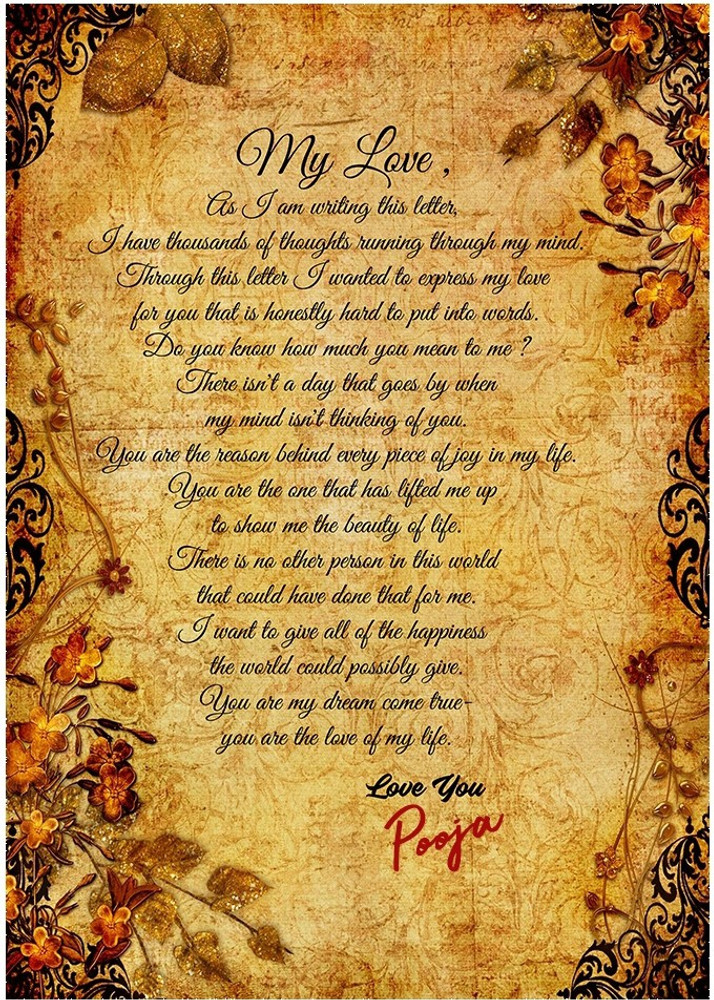 My Love ,
As I am writing this letter,
I have thousands of thoughts running through my mind.
Through this letter I wanted to express my love
for you that is honestly hard to put into words.
Do you know how much you mean to me ?
There isn't a day that goes by when
my mind isn't thinking of you.
You are the reason behind every piece of joy in my life.
You are the one that has lifted me up
to show me the beauty of life.
There is no other person in this world
that could have done that for me.
I want to give all of the happiness
the world could possibly give.
You are my dream come true-
you are the love of my life.
Love You
Pooja